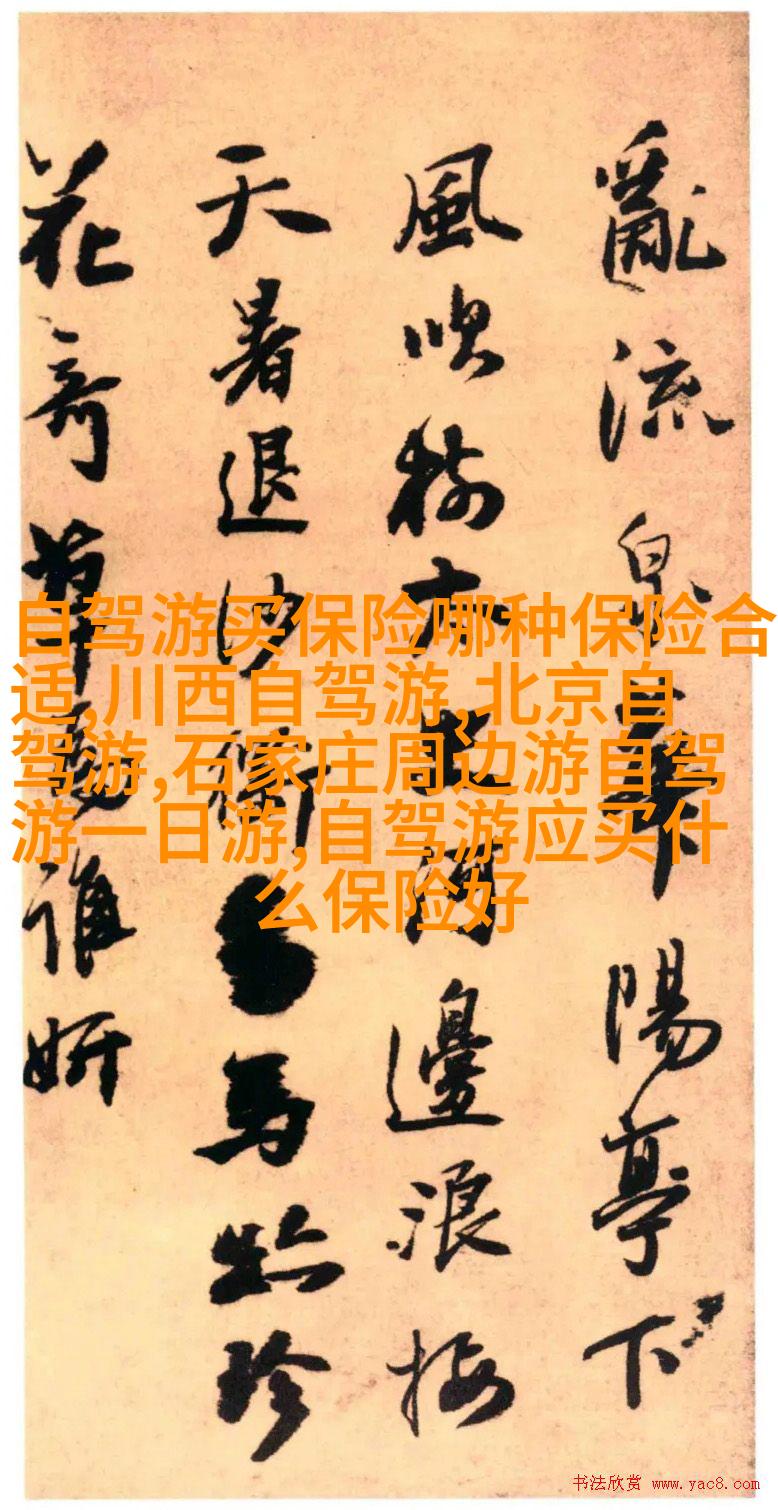 亂流泉華陽亭下
風吹邊浪接
天暑退沙馬珍
花奇草誰妍
自驾游买保险哪种保险合
适,川西自驾游,北京自
驾游,石家庄周边游自驾
游一日游,自驾游应买什
么保险好
书法欣赏 www.yac8.com